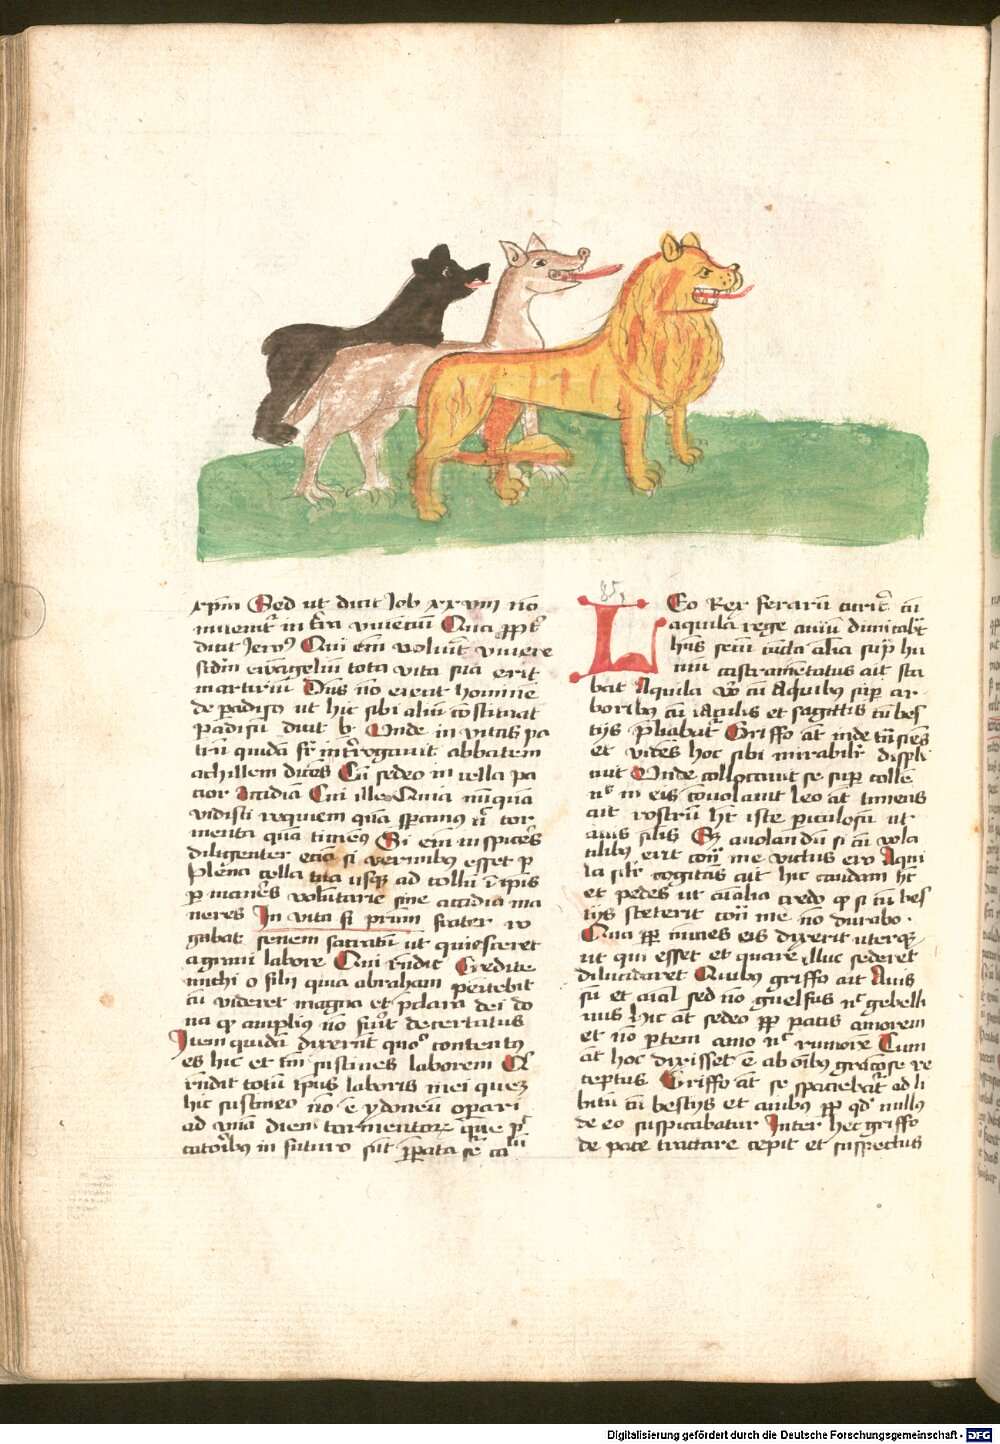 xpm Sed ut dicit Job xxviii nō
inuenit in tr̄a viuenciū Quia
dicit Jero⁹ Qui em̄ volunt viuere
scdm ewāgeliū tota vita sua erit
martiriū Dn̄s nō eiecit hominē
de padiso ut hic sibi aliū cōstituat
padisū dicit Unde in vitas pa
trū quidā fr̄ int̄rogauit abbatem
achillem dicēs Cū sedeo in cella pa
cior accidiā Cui ille Quia nūquā
vidisti requiem quā spam⁹ nec tor
menta quā timem⁹ Si em̄ inspiceres
diligenter ecia si vermibus esset
plena cella tua usqz ad collū
maneres voluntarie sine accidia
In vita frater ro
gabat senem ut quiesceret
a graui labore Qui rn̄dit Credite
michi o filii quia abraham penitebit
cū videret magna et pclara dei do
na qz amplius nō fuit decertatus
Juem quidā dixerūt quō contentus
es hic et tm̄ sustines laborem
rn̄dit totū ipus laboris mei quez
hic sustineo nō ē ydoneū opari
ad vnā diem tormentorz que pec
catoribus in futuro sūt pparata
85
LEo Rex ferarū cū
aquila rege auiū dimicabat
hn̄s secū cūcta alīa sup hu
mū castrametatus ait sta
bat Aquila vō cū Auibus sup ar
boribus cū iaculis et sagittis cū bes
tijs Griffo at inde
et vidēs hoc sibi mirabilit displi
cuit Unde collocauit se sup colle
in eis conuolauit leo at timens
ait rostrū ht iste periculosū ut
auis alis Et auolandū si cū vola
tilibus erit cont̄ me victus ero Aqui
la silr cogitās ait hic caudam ht
et pedes ut aīalia credo qz si cū bes
tijs steterit cont̄ me nō durabo
Quia nūcios eis dixerit uterqz
ut qui esset et quare illuc sederet
dilucidaret Quibus griffo ait Auis
sū et aīal sed nō guelfus nec gebelli
nus hic at sedeo pacis amorem
et nō partem amo nec rumorē Cum
at hoc dixisset ē ab oībus graciose re
ceptus Griffo at se spaciebat ad li
bitū cū bestijs et auibus nullus
de eo suspicabatur Inter hec griffo
de pace tractare cepit et suspectus
Digitalisierung gefördert durch die Deutsche Forschungsgemeinschaft - DFG